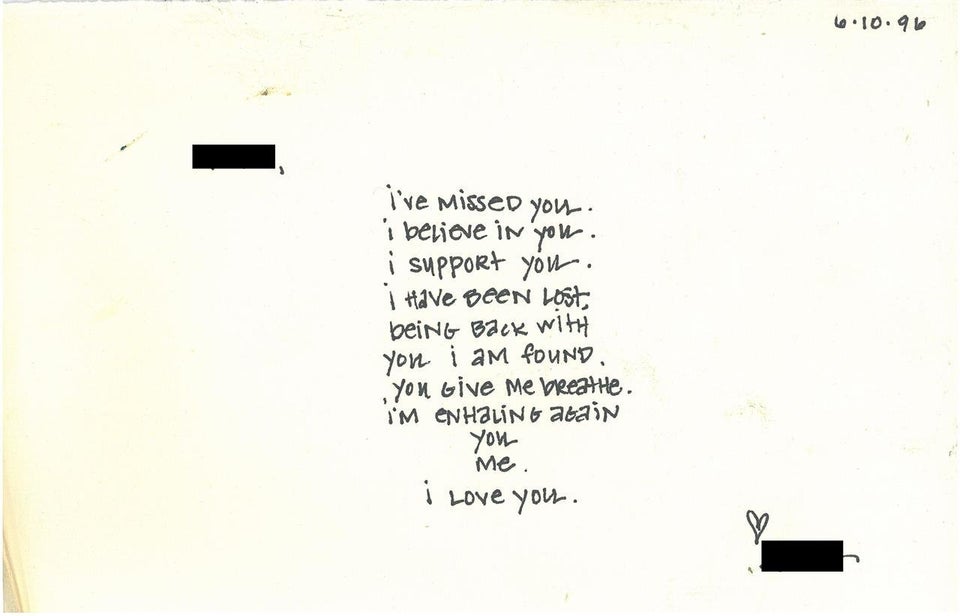 6.10.96
,
i've missed you.
i believe in you.
i support you.
i have been lost,
being back with
you i am found.
you give me breathe.
i'm enhaling again
you
me.
i love you.